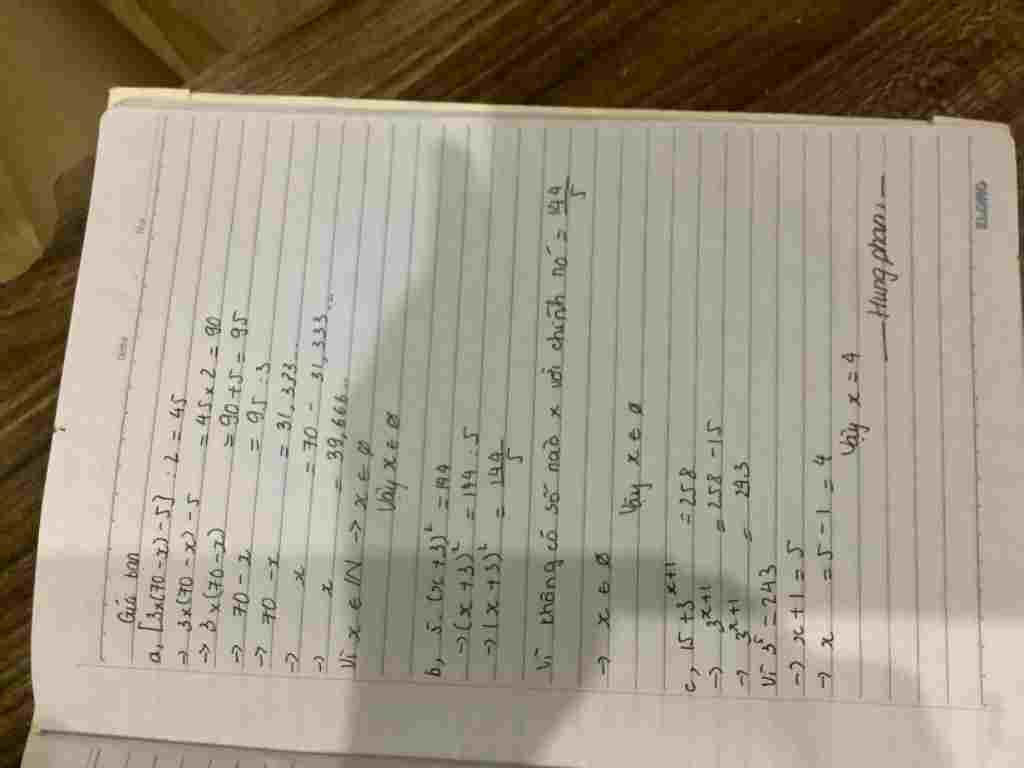 No.
Date
Gửi bạn
a, [3x(70-x)-5] : 2 = 45
→ 3x(70-x)-5 = 45x2 = 90
→ 3x(70-x) = 90+5 = 95
→ 70-x = 95:3
→ 70-x = 31,333...
→ x = 70 - 31,333...
→ x = 39,666...
Vì x ∈ IN → x ∈ Ø
Vậy x ∈ Ø
b, 5.(x+3)² = 144
→ (x+3)² = 144:5
→ (x+3)² = 144/5
Vì không có số nào x với chính nó = 144/5
→ x ∈ Ø
Vậy x ∈ Ø
c, 15 + 3^{x+1} = 258
→ 3^{x+1} = 258 - 15
→ 3^{x+1} = 243
Vì 3⁵ = 243
→ x+1 = 5
→ x = 5-1 = 4
Vậy x = 4
— Hungphan —